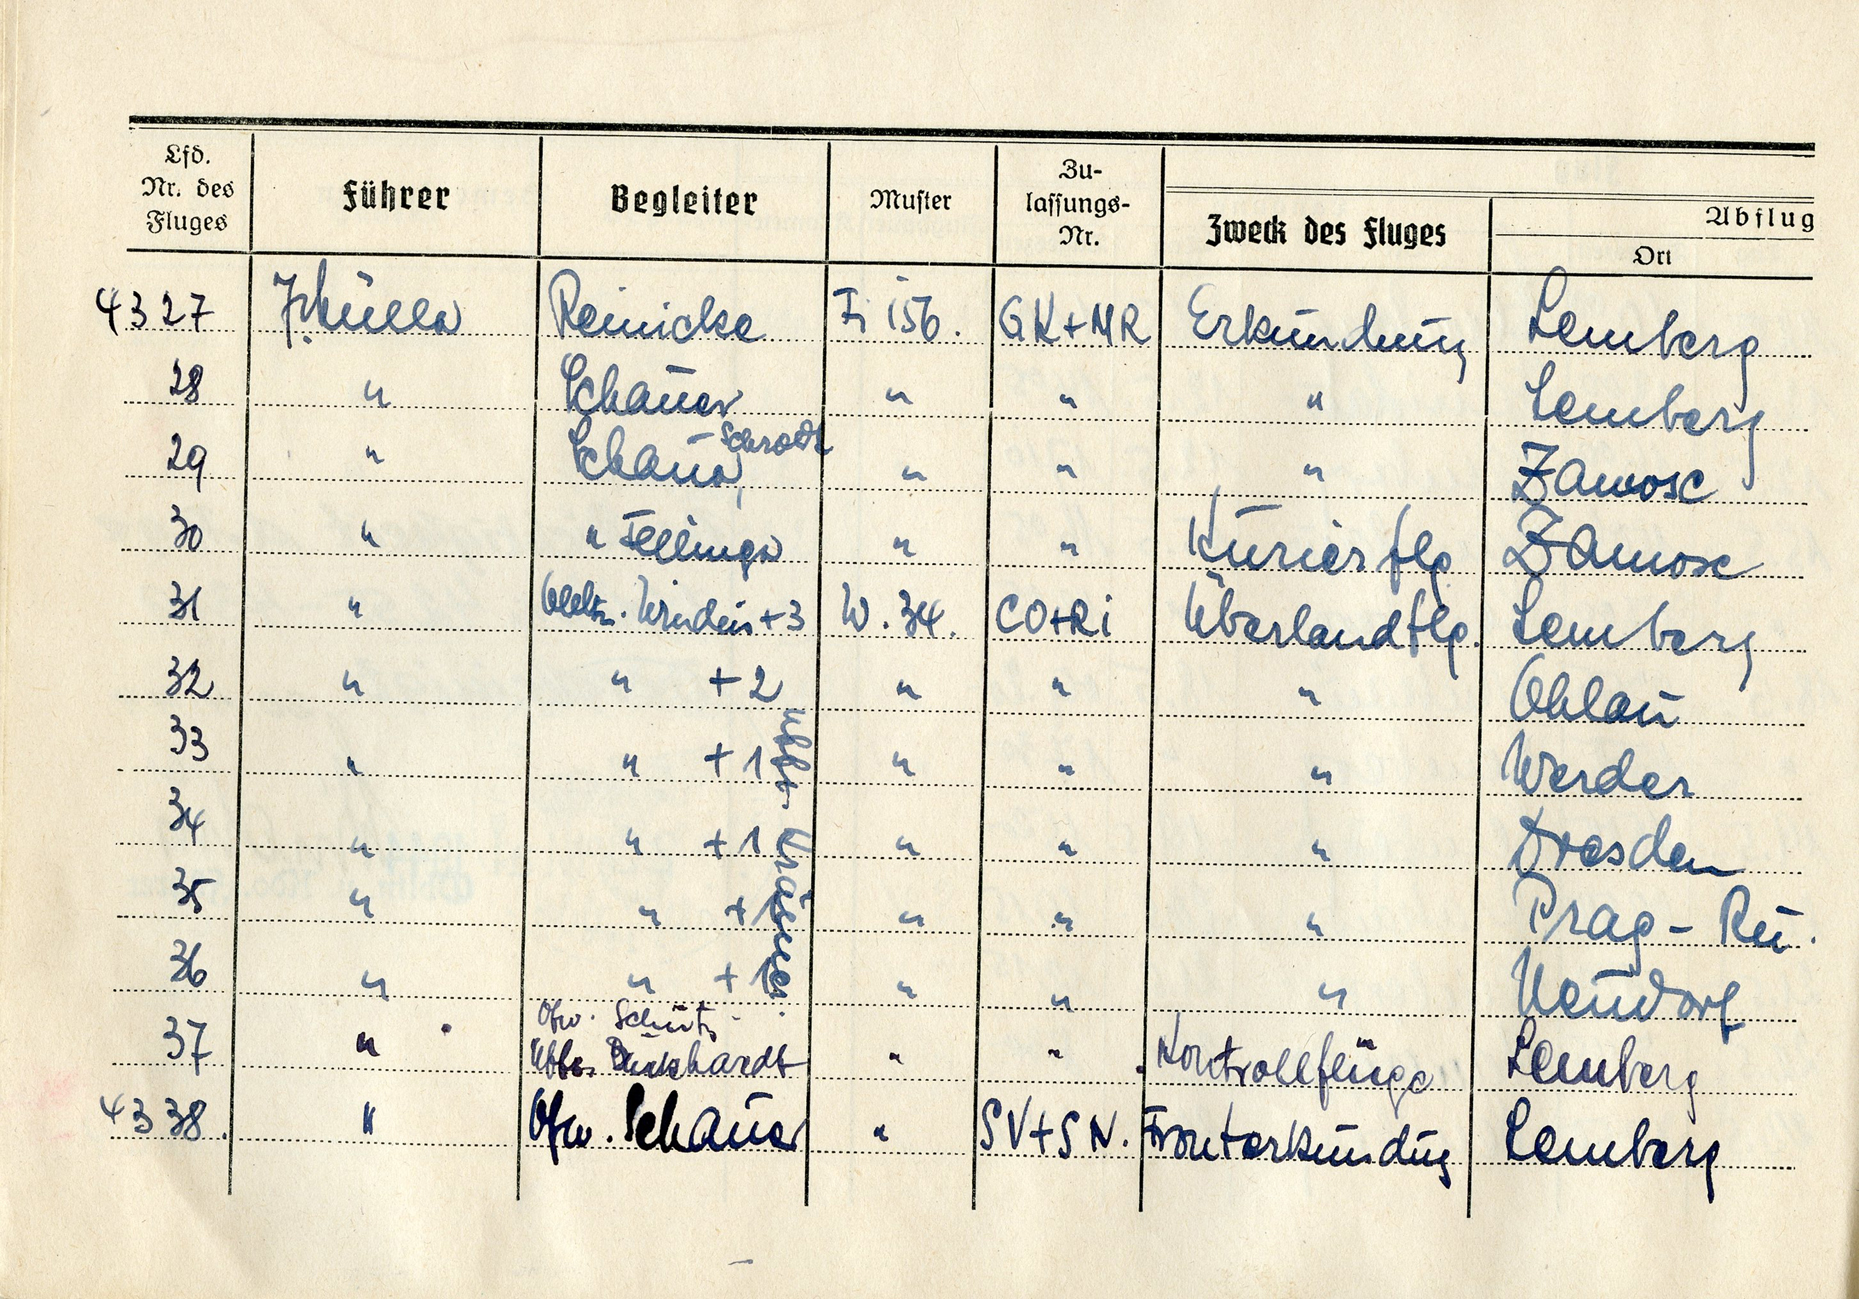 Lfd. Nr. des Fluges Führer Begleiter Muster Zulassungs-Nr. Zweck des Fluges Abflug Ort
4327 Reinicke Fi 156. GK+MR Erkundung Lemberg
28 " Schauer " " " Lemberg
29 " Schauer, Schrodt " " " Zamosc
30 " " Fellinger " " Kurierflg Zamosc
31 " +3 W. 34. CO+Ri Überlandflg. Lemberg
32 " " +2 " " " Ohlau
33 " " +1 " " " Werder
34 " " +1 " " " Dresden
35 " " +1 " " " Prag - Ru.
36 " " +1 " " " Neudorf
Uffz.
37 " Ofw. Schütz Uffz. Burkhardt " " Kontrollflüge Lemberg
4338. " Ofw. Schauer " SV+SN. Fronterkundug Lemberg